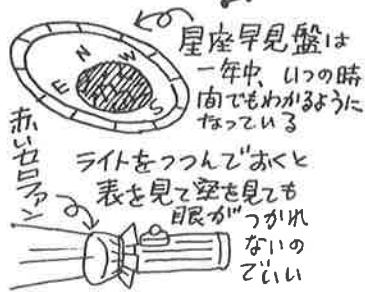 星座早見盤は
一年中、いつの時
間でもわかるように
なっている
N
W
E
S
赤いセロファン
ライトをつつんでおくと
表を見て空を見ても
眼がつかれ
ないの
でいい